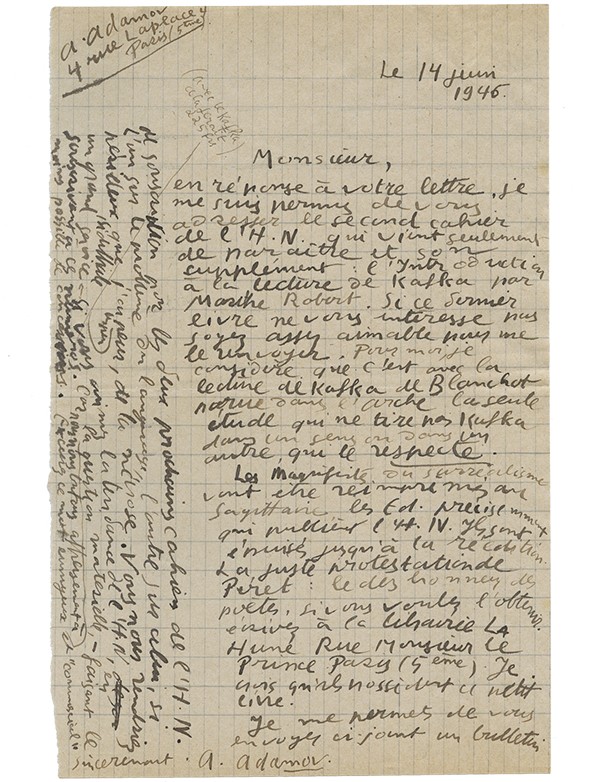 A. Adamov
4 rue Laplace
Paris (5ème)
Le 14 juin
1946.
Monsieur,
en réponse à votre lettre, je
me suis permis de vous
adresser le second cahier
de l'H.N. qui vient seulement
de paraître et son
supplément : l'Introduction
à la lecture de Kafka par
Marthe Robert. Si ce dernier
livre ne vous intéresse pas
soyez assez aimable pour me
le renvoyer. Pour moi, je
considère que c'est avec la
lecture de Kafka de Blanchot
parue dans l'arche la seule
étude qui ne tire pas Kafka
dans un sens ou dans un
autre, qui le respecte.
Les Manifestes du surréalisme
vont être réimprimés au
Sagittaire, les Ed. précisément
qui publient l'H.N. Ils sont
épuisés jusqu'à la réédition.
La juste protestation de
Péret : le deshonneur des
poètes, si vous voulez l'obtenir,
écrivez à la librairie LA
Hune Rue Monsieur le
Prince Paris (5ème). Je
crois qu'ils possèdent ce petit
livre.
Je me permets de vous
envoyer ci joint un bulletin
de souscription pour les deux prochains cahiers de l'H.N.
l'un sur le problème du langage, l'autre, sur
que j'ai peur, de la névrose. Vous nous rendriez
un grand service si vous aimez la tendance de l'H.N. en
la question matérielle, faisant le
moins possible de concessions. Excusez ce mot ennuyeux et "commercial"
sincèrement. A. Adamov.